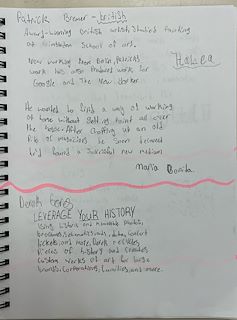 Patrick Bremer - british
Award-winning British artist, studied Painting
at Wimbledon School of art.
Now working from Berlin, Patrick's
work has also produced work for
Google and The New Yorker.
He wanted to find a way of working
at home without getting paint all over
the house. After chopping up an old
Pile of magazines he soon decided
he'd found a successful new medium
Maria Bonita
Derek Gores
LEVERAGE YOUR HISTORY
Using historic and
brochures, schematics, ads, concert
tickets and more, Derek recycles
Pieces of history and creates
custom works of art for large
brands, corporations, families and more.